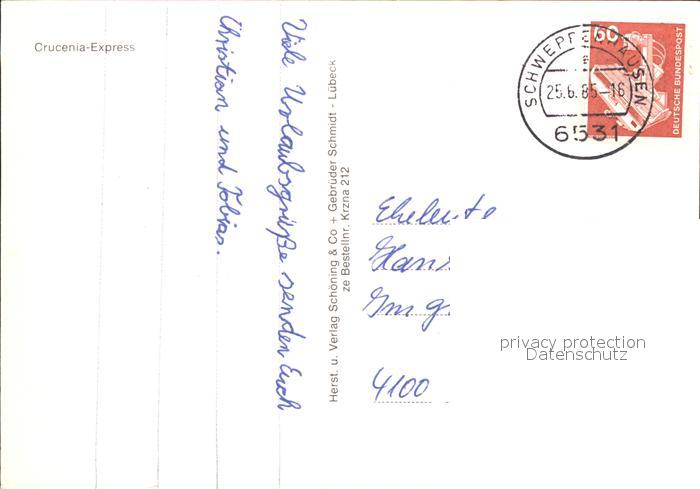 Crucenia-Express
Viele Urlaubsgrüße senden Euch
Christian und Tobias.
Herst. u. Verlag Schöning & Co + Gebrüder Schmidt - Lübeck
ze Bestellnr. Krzna 212
SCHWEPPENHAUSEN
25.6.85-16
6531
60
DEUTSCHE BUNDESPOST
Eheleute
Hans
Im g
4100
privacy protection
Datenschutz